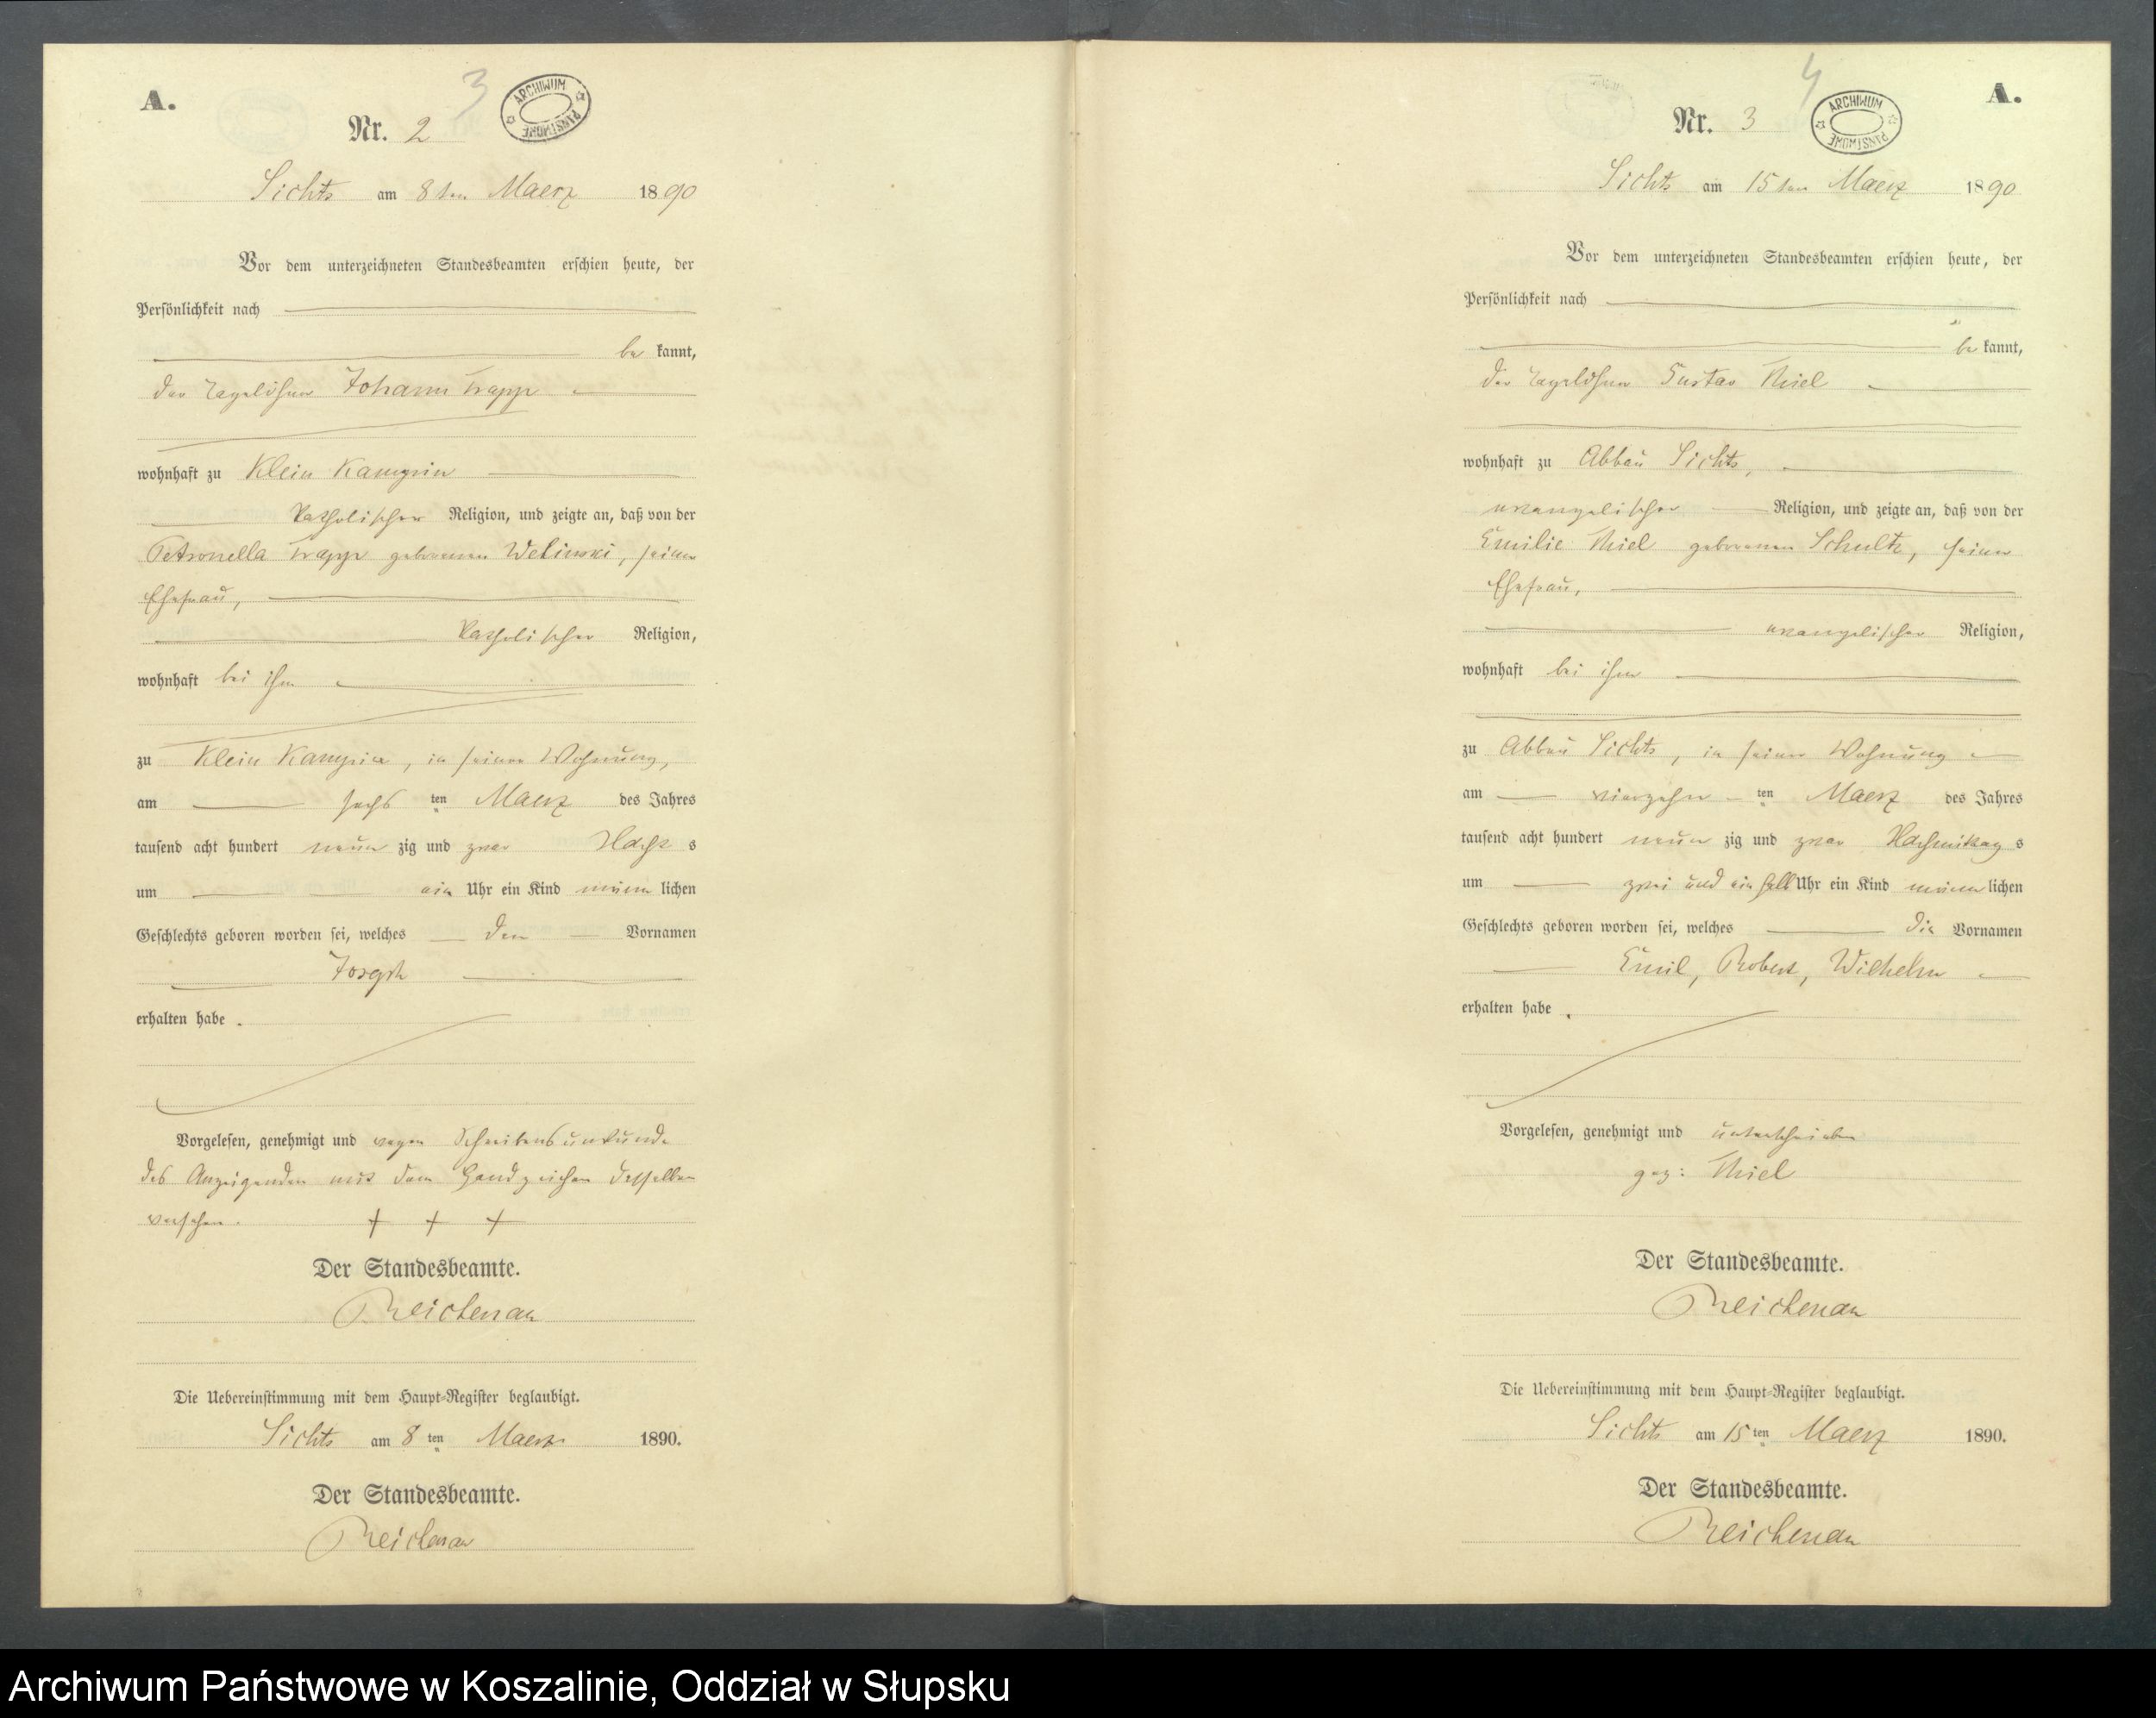 A.
3
ARCHIWUM PAŃSTWOWE
Nr. 2
Sichts am 8ten Maerz 1890
Vor dem unterzeichneten Standesbeamten erschien heute, der
Persönlichkeit nach
bekannt,
der Tagelöhner Johann Trapp
wohnhaft zu Klein Kamprin
katholischer Religion, und zeigte an, daß von der
Petronella Trapp geborenen Welinski, seiner
Ehefrau,
katholischer Religion,
wohnhaft bei ihm
zu Klein Kamprin, in seiner Wohnung,
am sechsten Maerz des Jahres
tausend acht hundert neunzig und zwar Nachts
um ein Uhr ein Kind männlichen
Geschlechts geboren worden sei, welches den Vornamen
Joseph
erhalten habe.
Vorgelesen, genehmigt und wegen Schreibensunkunde
des Anzeigenden mit dem Handzeichen desselben
versehen. + + +
Der Standesbeamte.
Reichenau
Die Uebereinstimmung mit dem Haupt-Register beglaubigt.
Sichts am 8ten Maerz 1890.
Der Standesbeamte.
Reichenau
4
A.
ARCHIWUM PAŃSTWOWE
Nr. 3
Sichts am 15ten Maerz 1890
Vor dem unterzeichneten Standesbeamten erschien heute, der
Persönlichkeit nach
bekannt,
der Tagelöhner Gustav Thiel
wohnhaft zu Abbau Sichts,
evangelischer Religion, und zeigte an, daß von der
Emilie Thiel geborenen Schultz, seiner
Ehefrau,
evangelischer Religion,
wohnhaft bei ihm
zu Abbau Sichts, in seiner Wohnung
am vierzehnten Maerz des Jahres
tausend acht hundert neunzig und zwar Nachmittags
um zwei und ein halb Uhr ein Kind männlichen
Geschlechts geboren worden sei, welches die Vornamen
Emil, Robert, Wilhelm
erhalten habe.
Vorgelesen, genehmigt und unterschrieben
gez: Thiel
Der Standesbeamte.
Reichenau
Die Uebereinstimmung mit dem Haupt-Register beglaubigt.
Sichts am 15ten Maerz 1890.
Der Standesbeamte.
Reichenau
Archiwum Państwowe w Koszalinie, Oddział w Słupsku